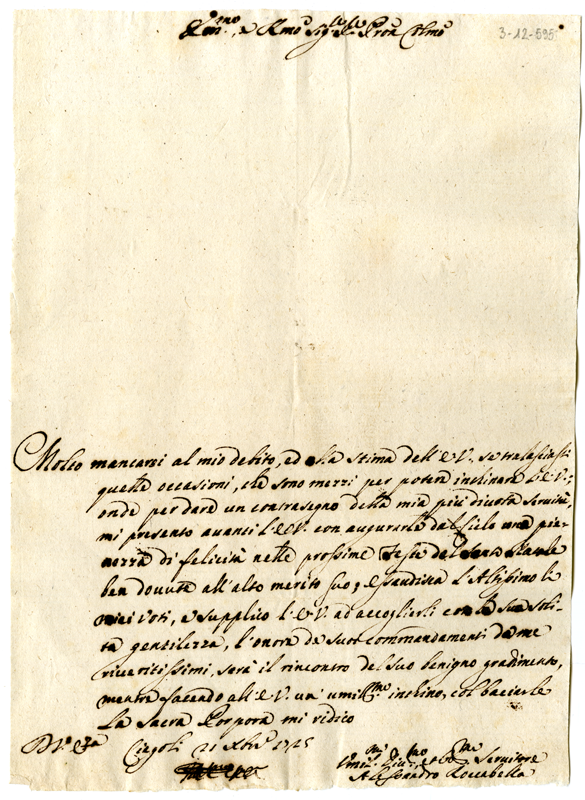 Em.mo, e R.mo Sig.re Sig.re P.ron Col.mo
3-12-595
Molto mancarei al mio debito, ed alla stima dell'E.V. se tralasciassi
quelle occasioni, che sono mezzi per poter inclinare l'E.V.;
onde per dare un contrasegno della mia più divota servitù,
mi presento avanti l'E.V. con augurarle dal Cielo una pie-
nezza di felicità nelle prossime Feste del Santo Natale
ben dovuta all'alto merito suo; esaudisca l'Altissimo li
miei voti, e supplico l'E.V. ad accoglierli con la sua soli-
ta gentilezza, l'onore de suoi commandamenti da me
riveritissimi, sarà il rincontro del suo benigno gradimento,
mentre facendo all'E.V. un' umil.mo inchino, col baciarle
La Sacra Porpora mi ridico
D. V. Em.za
Cingoli 21 Xbre 1715
Umil.mo Div.mo, et Obb.mo Servitore
Alessandro Roccabella